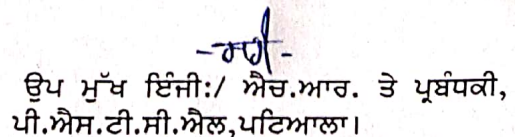 ਉਪ ਮੁੱਖ ਇੰਜੀ:/ ਐਚ.ਆਰ. ਤੇ ਪ੍ਰਬੰਧਕੀ,
ਪੀ.ਐਸ.ਟੀ.ਸੀ.ਐਲ,ਪਟਿਆਲਾ।